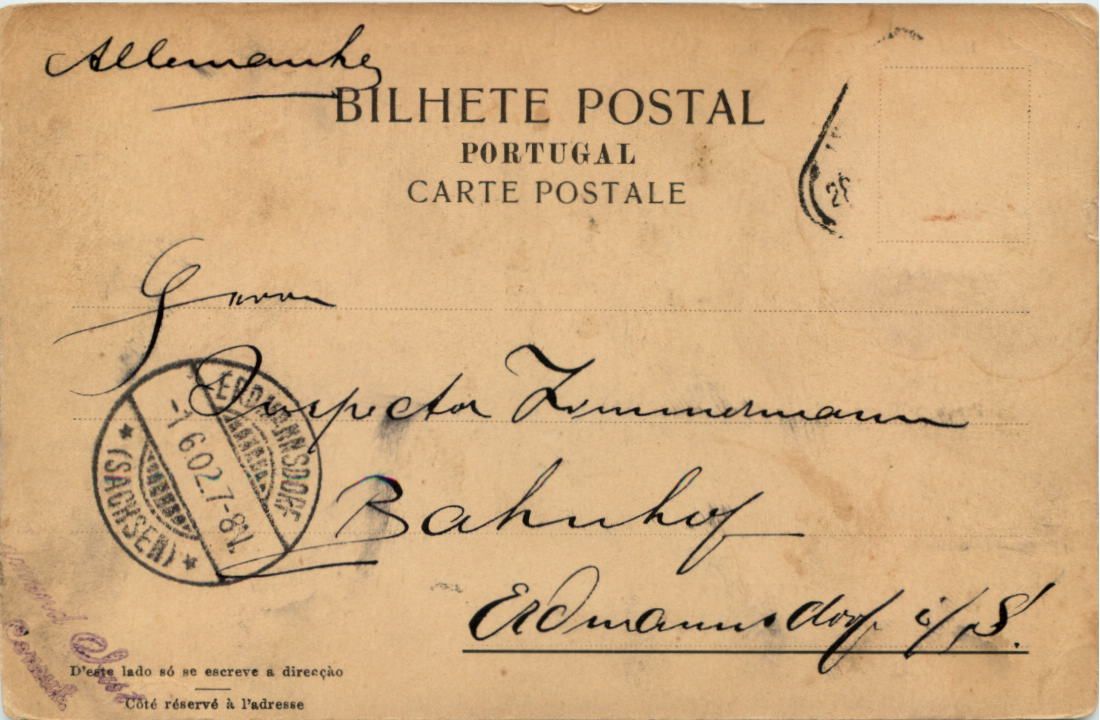 Allemanha
BILHETE POSTAL
PORTUGAL
CARTE POSTALE
28
Herrn
Inspector Zimmermann
Bahnhof
Erdmannsdorf i/S.
ERDMANNSDORF
-1 6 02 7-8V.
* (SACHSEN) *
D'este lado só se escreve a direcção
Côté réservé à l'adresse